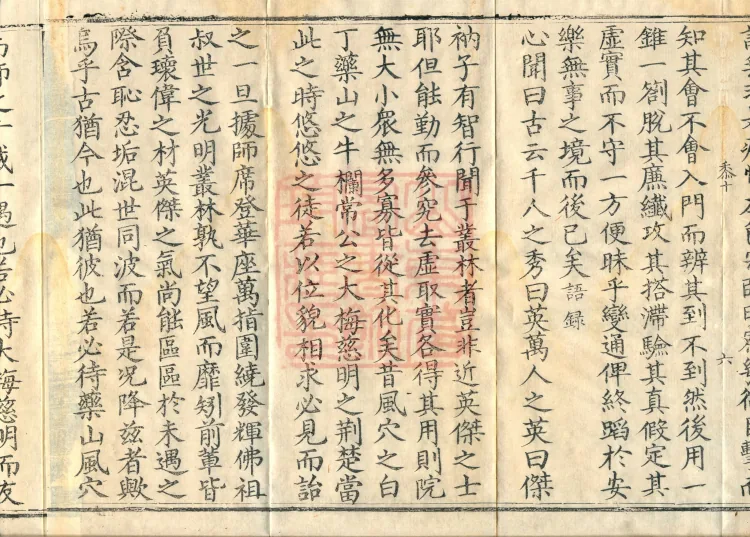 知其會不會入門而辨其到不到然後用一
錐一劄脫其廉纖攻其搭滯驗其真假定其
虛實而不守一方便昧乎變通俾終蹈於安
樂無事之境而後已矣語録
心聞曰古云千人之秀曰英萬人之英曰傑
衲子有智行聞于叢林者豈非近英傑之士
耶但能勤而參究去虛取實各得其用則院
無大小衆無多寡皆從其化矣昔風穴之白
丁藥山之牛欄常公之大梅慈明之荆楚當
此之時悠悠之徒若以位貌相求必見而詒
之一旦據師席登華座萬指圍繞發輝佛祖
叔世之光明叢林孰不望風而靡矧前輩皆
負瓌偉之材英傑之氣尚能區區於未遇之
際含恥忍垢混世同波而若是况降兹者歟
烏乎古猶今也此猶彼也若必待藥山風穴
而師之千載一遇也若必待大梅慈明而友